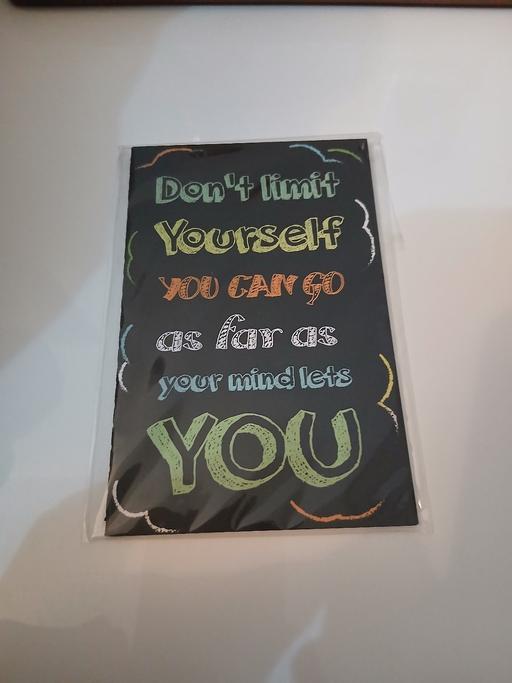 Don't limit
Yourself
YOU CAN GO
as far as
your mind lets
YOU